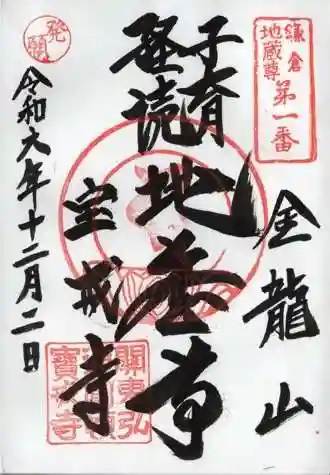 鎌倉
地蔵尊
第一番
金龍山
子育
経読
地蔵尊
宝戒寺
発願
令和六年十二月二日